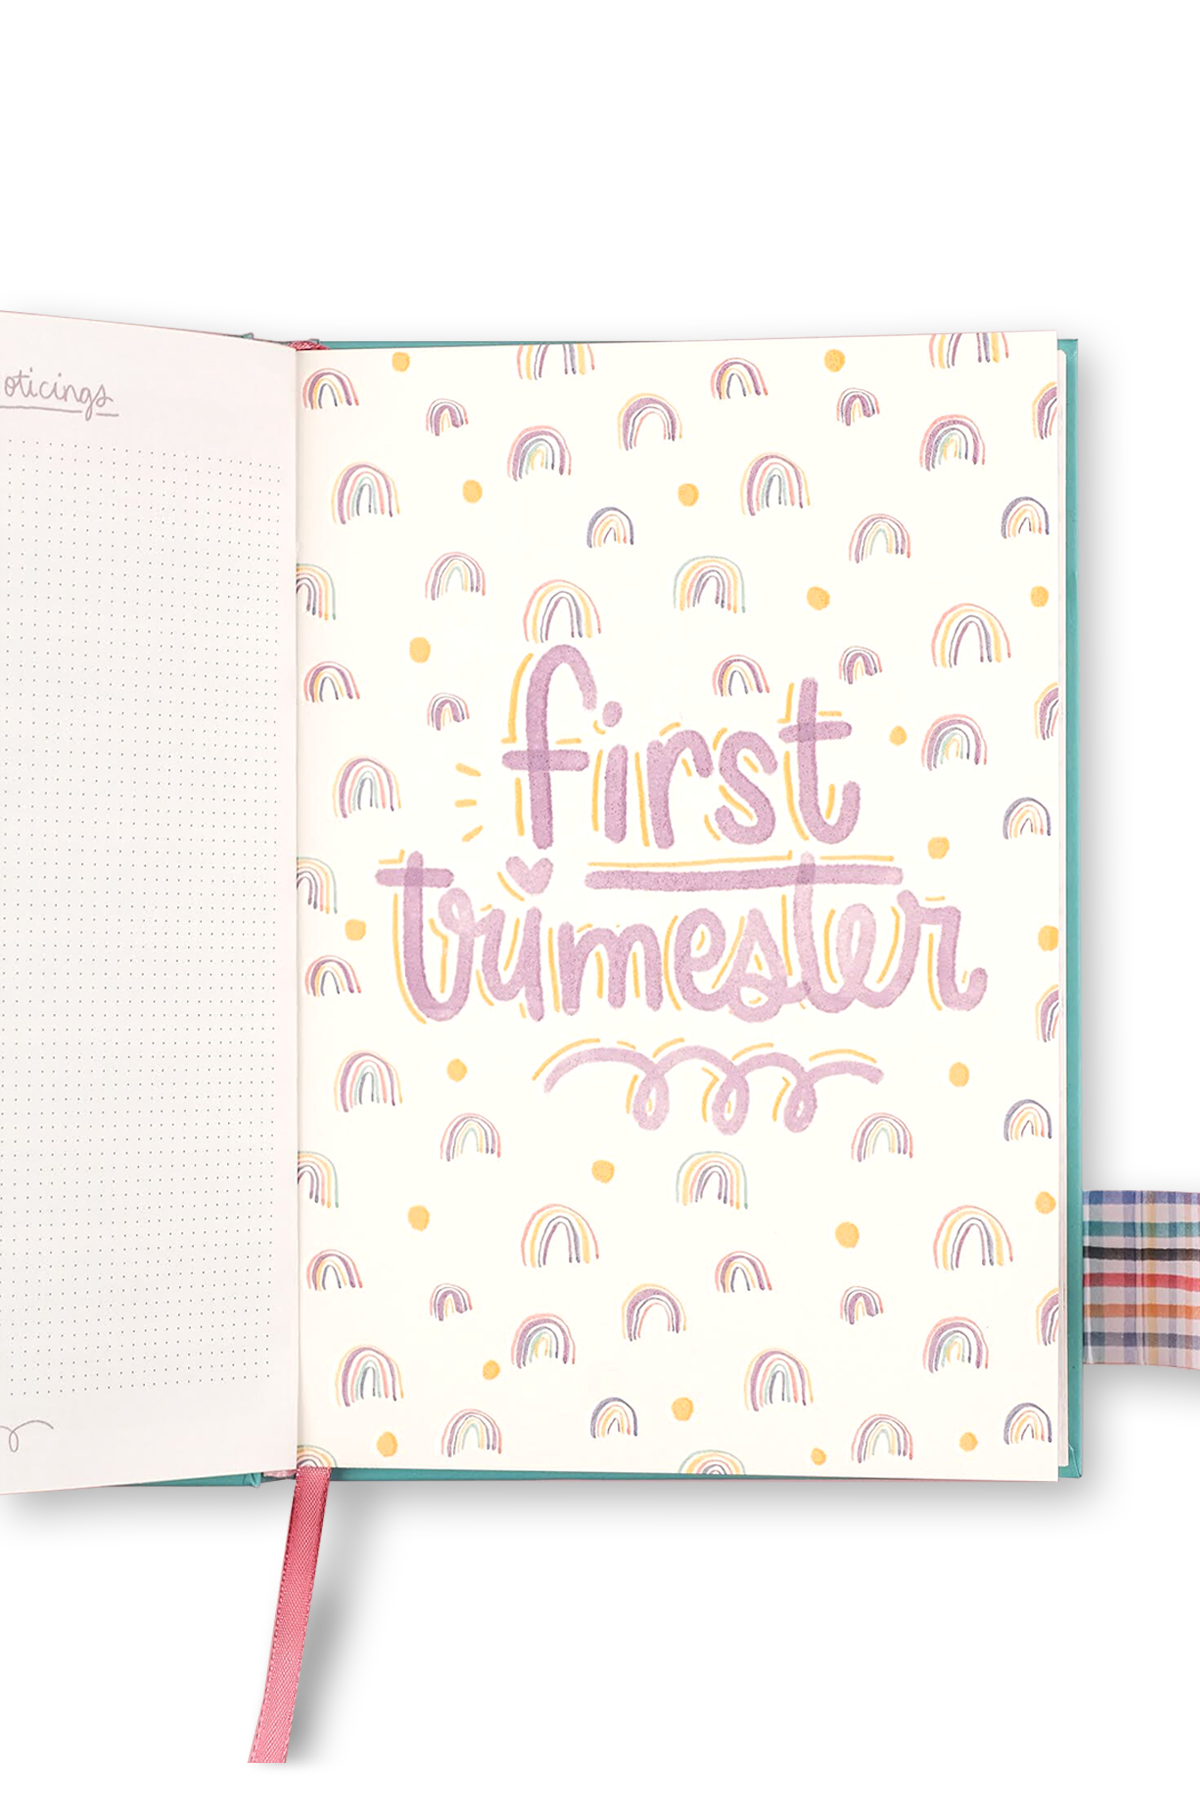 oticings
first
trimester